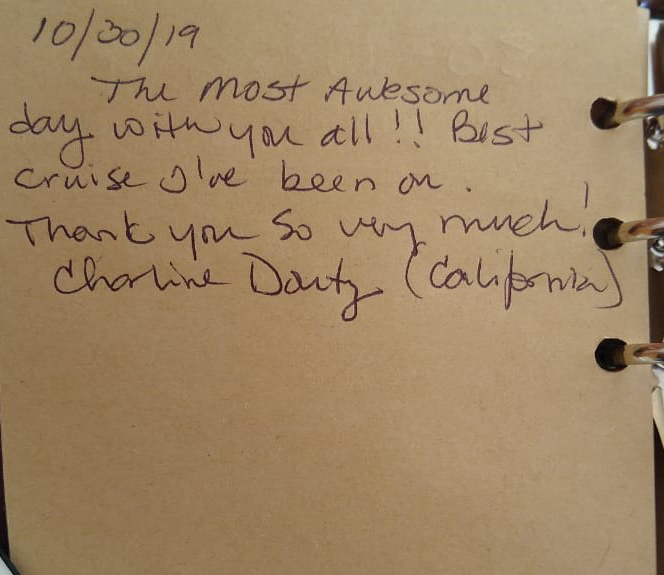 10/30/19
The most Awesome
day with you all!! Best
cruise I've been on.
Thank you so very much!
Charline (California)